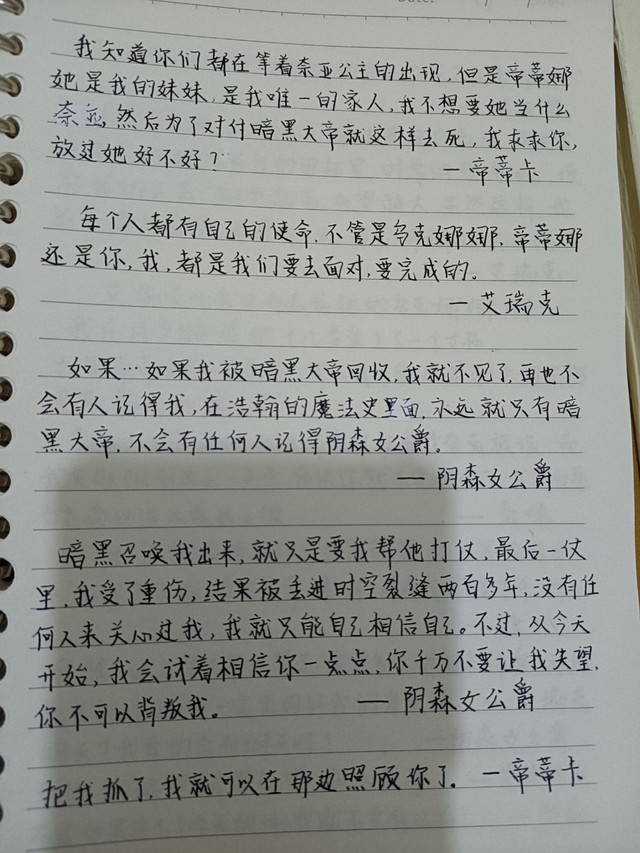 我知道你们都在等着奈亚公主的出现，但是帝蒂娜
她是我的妹妹，是我唯一的家人，我不想要她当什么
奈亚，然后为了对付暗黑大帝就这样去死，我求求你，
放过她好不好？
—帝蒂卡
每个人都有自己的使命，不管是多克娜娜，帝蒂娜
还是你，我，都是我们要去面对，要完成的。
—艾瑞克
如果…如果我被暗黑大帝回收，我就不见了，再也不
会有人记得我，在浩翰的魔法史里面，永远就只有暗
黑大帝，不会有任何人记得阴森女公爵。
—阴森女公爵
暗黑召唤我出来，就只是要我帮他打仗，最后一仗
里，我受了重伤，结果被丢进时空裂缝两百多年，没有任
何人来关心过我，我就只能自己相信自己。不过，从今天
开始，我会试着相信你一点点，你千万不要让我失望，
你不可以背叛我。 —阴森女公爵
把我抓了，我就可以在那边照顾你了。 —帝蒂卡